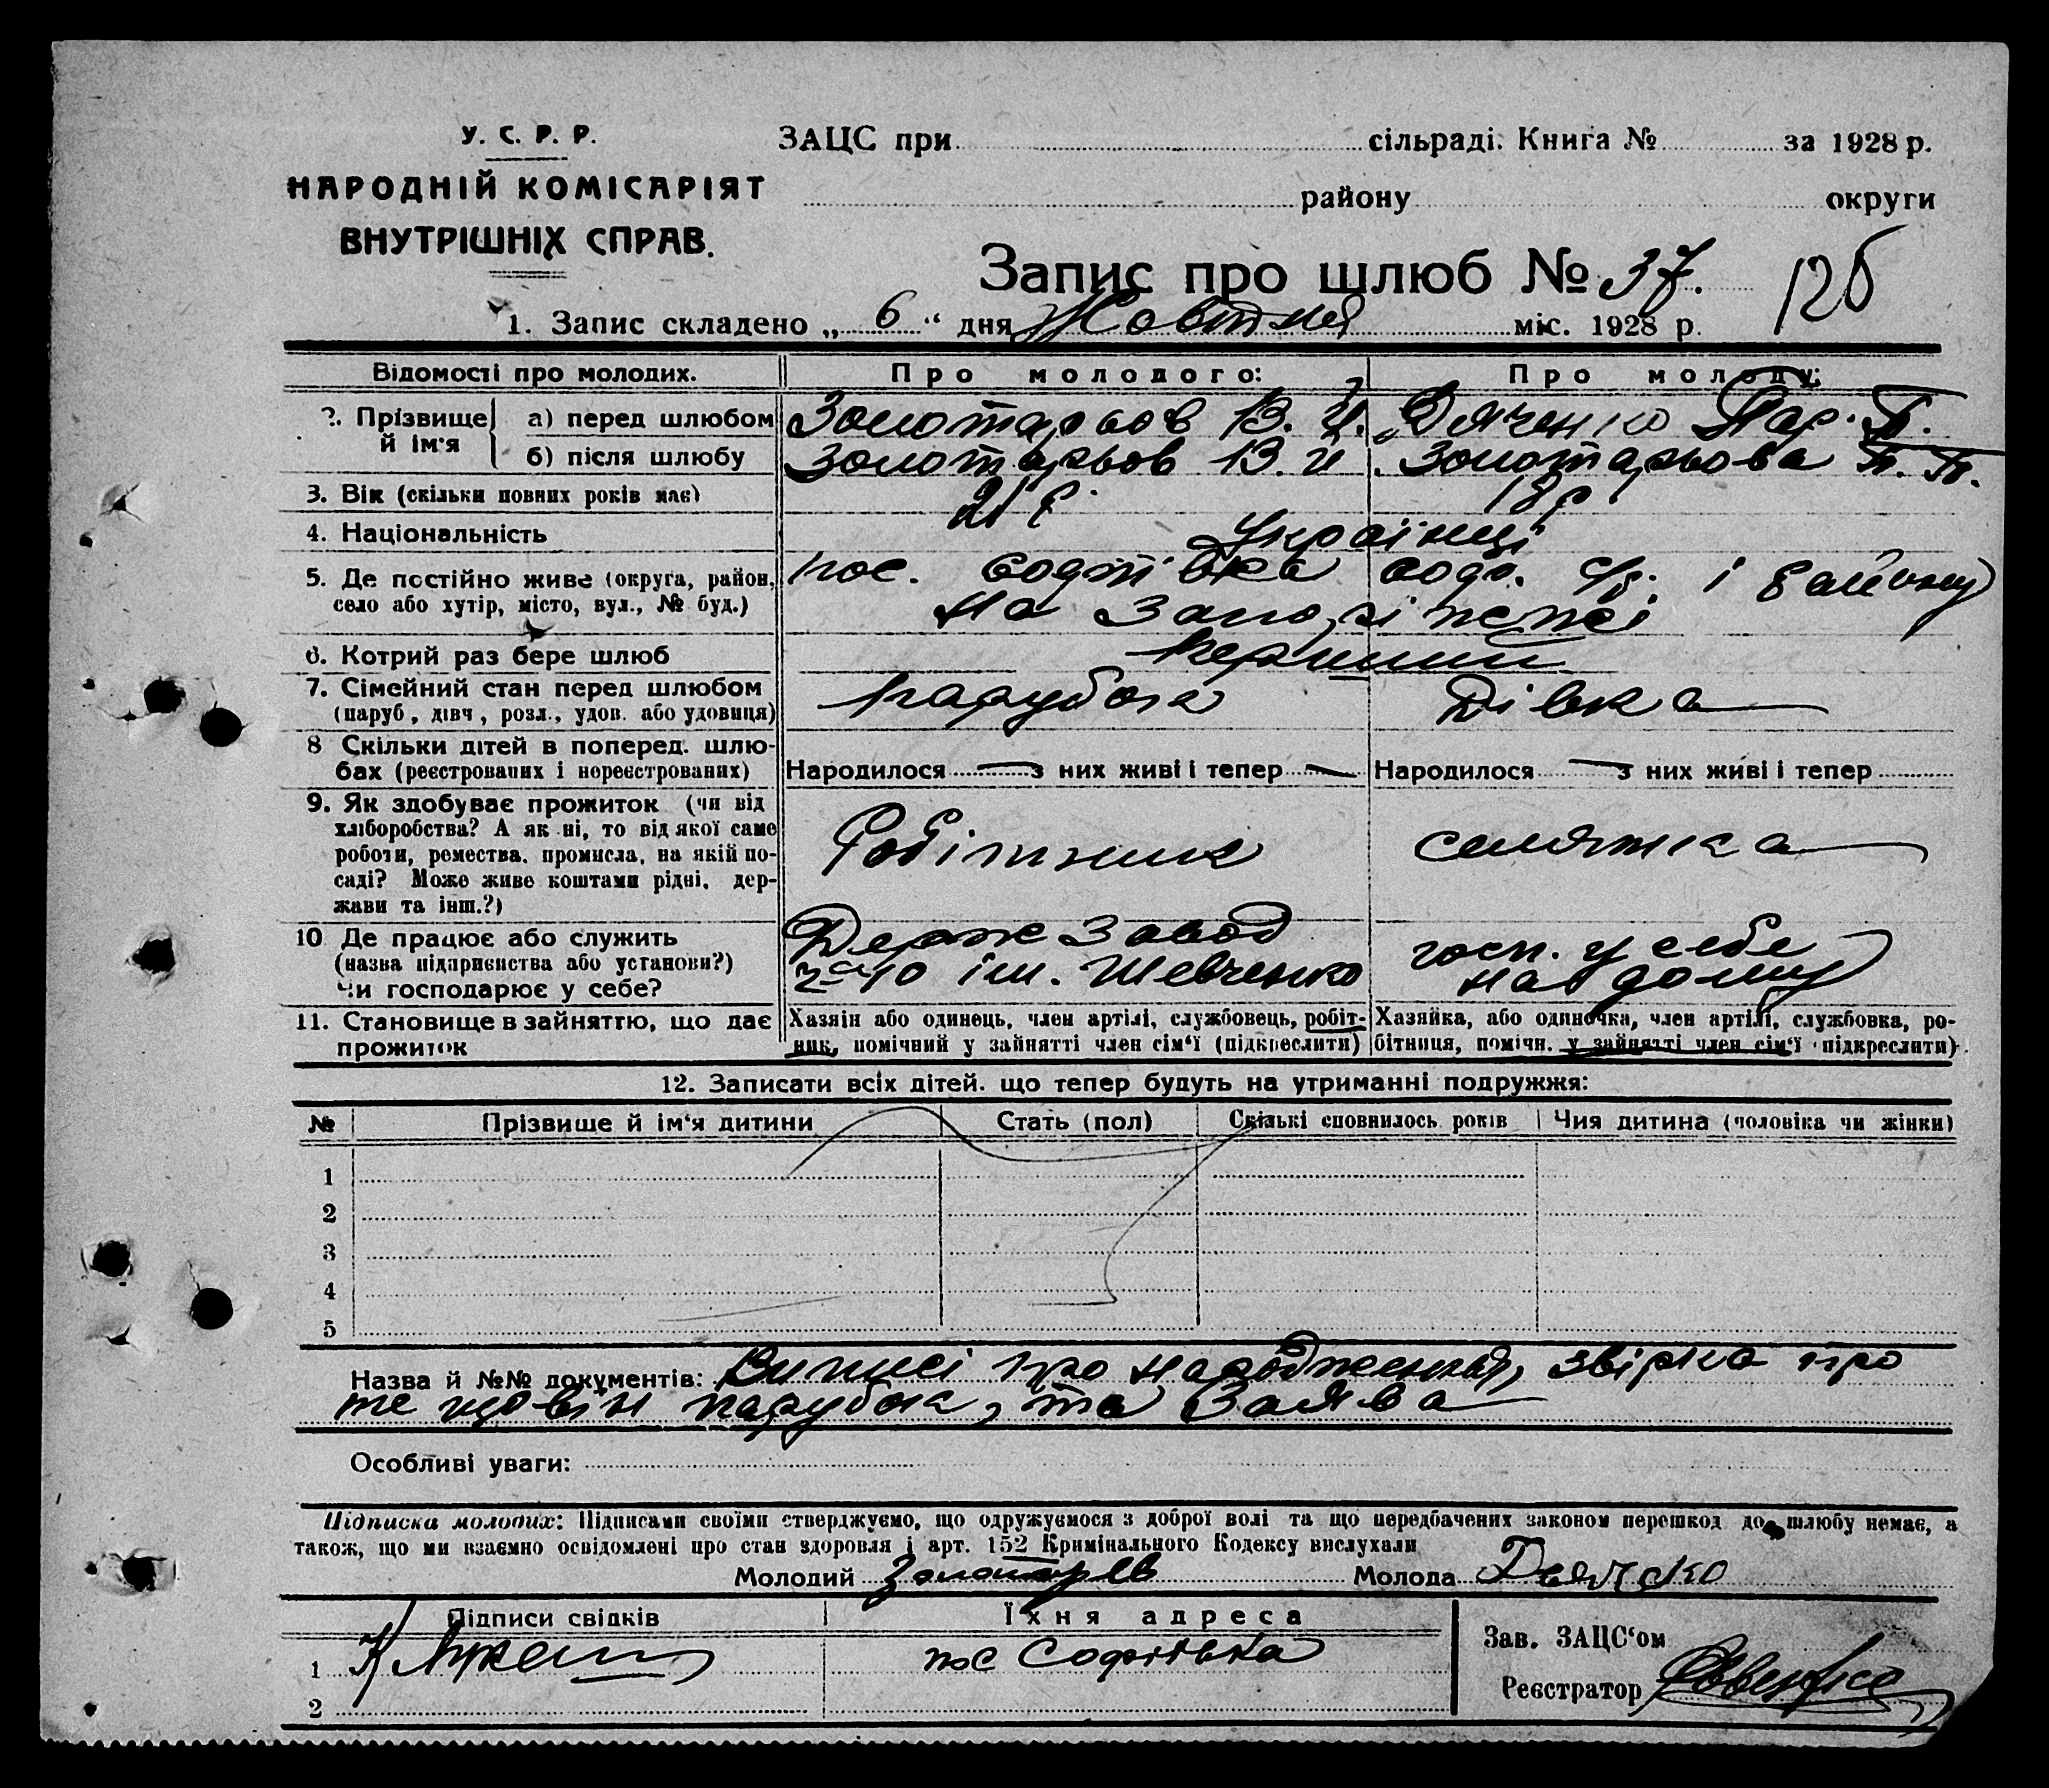 У. С. Р. Р.
НАРОДНІЙ КОМІСАРІЯТ
ВНУТРІШНІХ СПРАВ.
ЗАЦС при сільраді. Книга № за 1928 р.
району округи
Запис про шлюб № 37.
126
1. Запис складено „ 6 “ дня Жовтня міс. 1928 р.
Відомості про молодих. Про молодого: Про молоду:
2. Прізвище й ім'я
а) перед шлюбом Золотарьов В. И. Дяченко Пар. П.
б) після шлюбу Золотарьов В. И. Золотарьова П. П.
3. Вік (скільки повних років має) 21 р. 18 р.
4. Національність Українці
5. Де постійно живе (округа, район, село або хутір, місто, вул., № буд.) пос. Софіївка соф. с/р. і району
на Запоріжжі
6. Котрий раз бере шлюб Перший
7. Сімейний стан перед шлюбом (паруб, дівч, розл., удов. або удовиця) парубок Дівка
8 Скільки дітей в поперед. шлюбах (реєстрованих і нереєстрованих) Народилося — з них живі і тепер — Народилося — з них живі і тепер
9. Як здобуває прожиток (чи від
хліборобства? А як ні, то від якої саме
роботи, ремества, промисла, на якій по-
саді? Може живе коштами рідні, дер-
жави та інш.?)
Робітник селянка
10 Де працює або служить
(назва підприємства або установи?)
Чи господарює у себе?
Держ Завод
імт. Шевченко
госп. у себе
на дому
11. Становище в зайняттю, що дає
прожиток
Хазяін або одинець, член артілі, службовець, робіт-
ник, помічний у зайнятті член сім'ї (підкреслити)
Хазяйка, або одиночка, член артілі, службовка, ро-
бітниця, помічн. у зайнятті член сім'ї підкреслити)
12. Записати всіх дітей, що тепер будуть на утриманні подружжя:
№ Прізвище й ім'я дитини Стать (пол) Скількі сповнилось років Чия дитина (чоловіка чи жінки)
1
2
3
4
5
Назва й №№ документів: Виписі про народження, звірка про
те що він парубок, та Заява
Особливі уваги:
Підписка молодих: Підписами своїми стверджуємо, що одружуємося з доброї волі та що передбачених законом перешкод до шлюбу немає, а
також, що ми взаємно освідомлені про стан здоровля і арт. 152 Кримінального Кодексу вислухали
Молодий Золотарев Молода Дяченко
Підписи свідків Їхня адреса
1 пос Софіівка
2
Зав. ЗАЦС'ом
Реєстратор